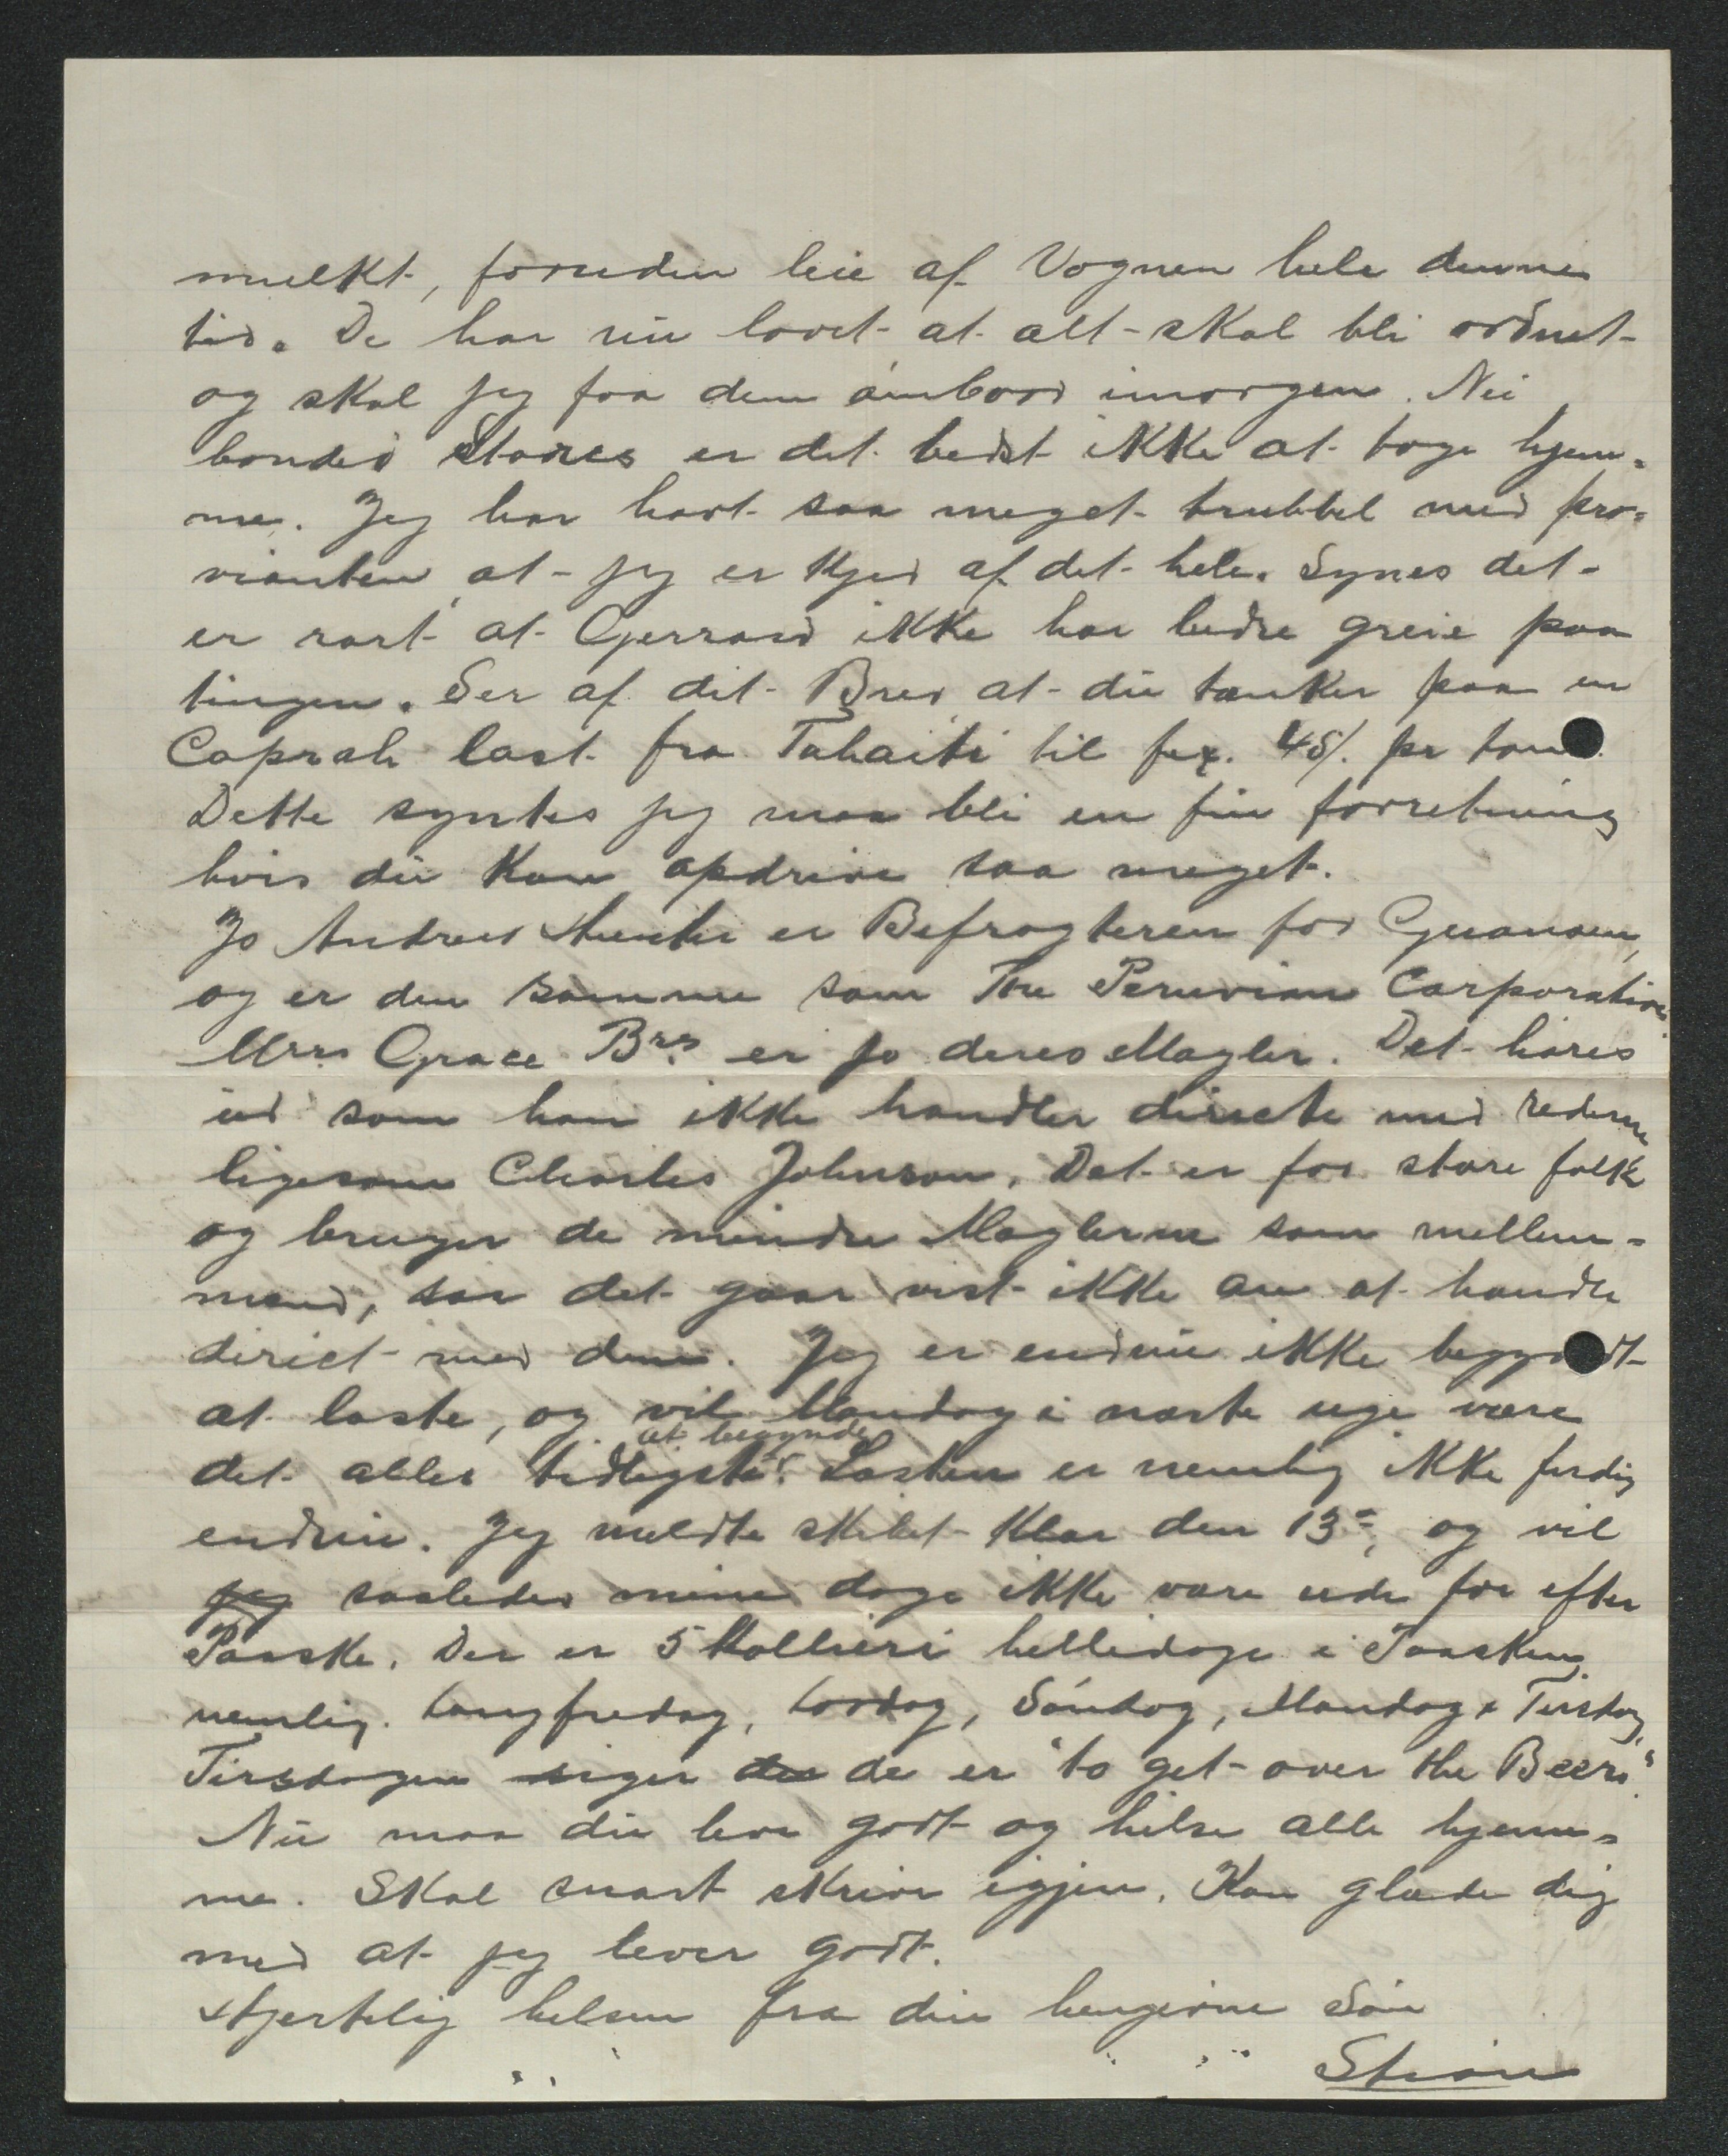 mulkt, foruden leie af Vognen hele denne
tid. De har nu lovet at alt skal bli ordnet
og skal jeg faa dem ombord imorgen. Nei
bonded Stores er det bedst ikke at tage hjem=
me. Jeg har havt saa meget trubbel med pro=
vianten, at jeg er kjed af det hele. Synes det
er rart at Gerrard ikke har bedre greie paa
tingen. Ser af dit Brev at du tænker paa en
Coprah last fra Tahaiti til fex. 45/. pr ton
Dette syntes jeg maa bli en fin forretning
hvis du kan opdrive saa meget.
Jo Andrews er Befragteren for Guanoen,
og er den samme som The Peruvian Corporation.
Mrs Grace Brs er jo deres Magler. Det høres
ud som han ikke handler directe med rederne
ligesom Charles Johnson. Det er for store folk
og bruger de mindre Maglerne som mellem=
mænd, saa det gaar vist ikke an at handle
direct med dem. Jeg er endnu ikke begyndt
at laste, og vil Mandag i næste uge være
at begynde
det aller tidligste. Lasten er nemlig ikke ferdig
endnu. Jeg meldte skibet klar den 13=, og vil
jeg saaledes mine dage ikke være ude før efter
Paaske. Der er 5 Kollieri helledage i Paasken,
nemlig. Langfredag, Lørdag, Søndag, Mandag & Tirsdag,
Tirsdagen siger de de er "to get over the Beers"
Nu maa du leve godt og hilse alle hjem=
me. Skal snart skrive igjen. Kan glæde dig
med at jeg lever godt.
Hjertelig hilsen fra din hengivne Søn